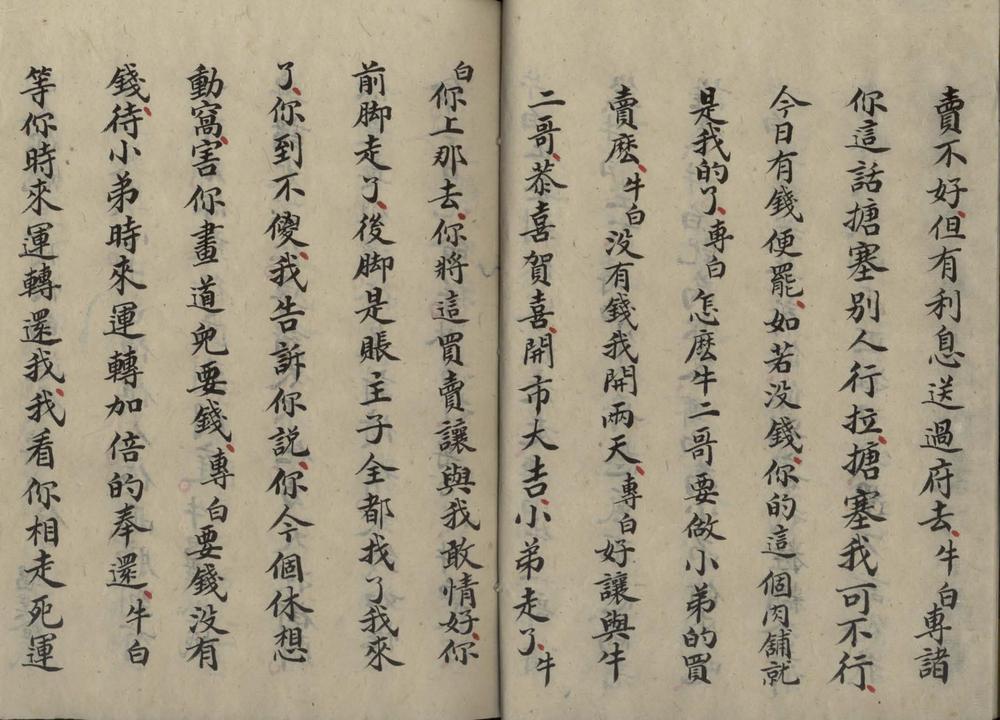 賣不好、但有利息送過府去、牛白專諸
你這話搪塞别人行拉、搪塞我可不行、
今日有錢便罷、如若没錢、你的這個肉舖就
是我的了、專白怎麽牛二哥要做小弟的買
賣麽、牛白没有錢我開兩天、專白好讓與牛
二哥、恭喜賀喜、開市大吉、小弟走了、牛
白你上那去、你將這買賣讓與我敢情好、你
前脚走了、後脚是賬主子全都找了我來
了、你到不儍、我告訴你説、你今個休想
動窩、害你畫道兒要錢、專白要錢没有
錢、待小弟時來運轉加倍的奉還、牛白
等你時來運轉還我、我看你相走死運